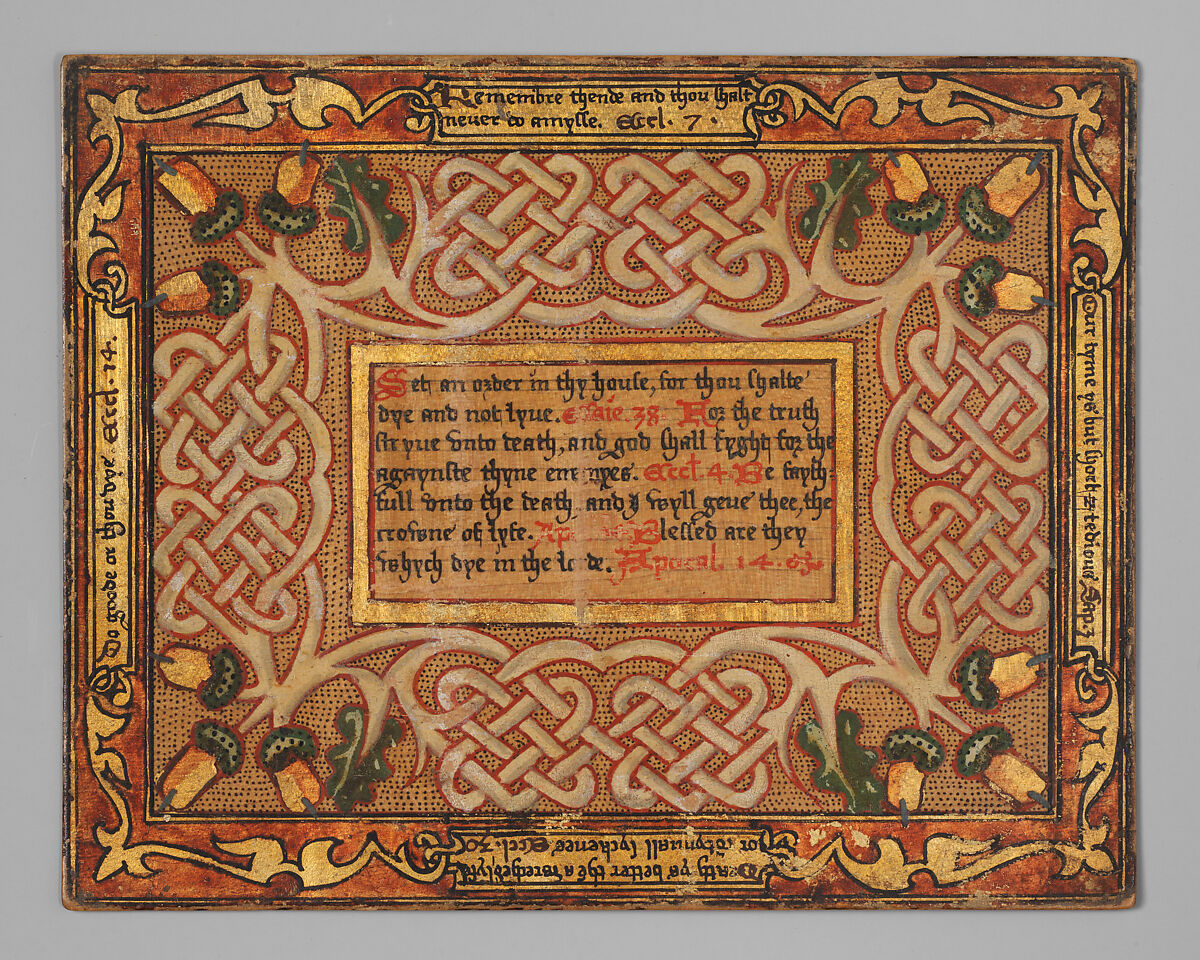 Remembre thende and thou shalt
never do amysse. Eccl. 7.
Seth an order in thy house, for thou shalte
dye and not lyue. Esaie 38. For the truth
stryue vnto death, and god shall fyght for the
agaynste thyne enemyes. Eccl. 4. Be fayth-
full vnto the death and I wyll geue thee, the
crowne of lyfe. Blessed are they
whych dye in the lorde. Apocal. 14.
Do goode or thou dye Eccl. 14.
Our tyme ys but short & tedious, Sap. 2
Death ys better thē a wrechedlyfe
or cōtynuall syckenes Eccl. 30